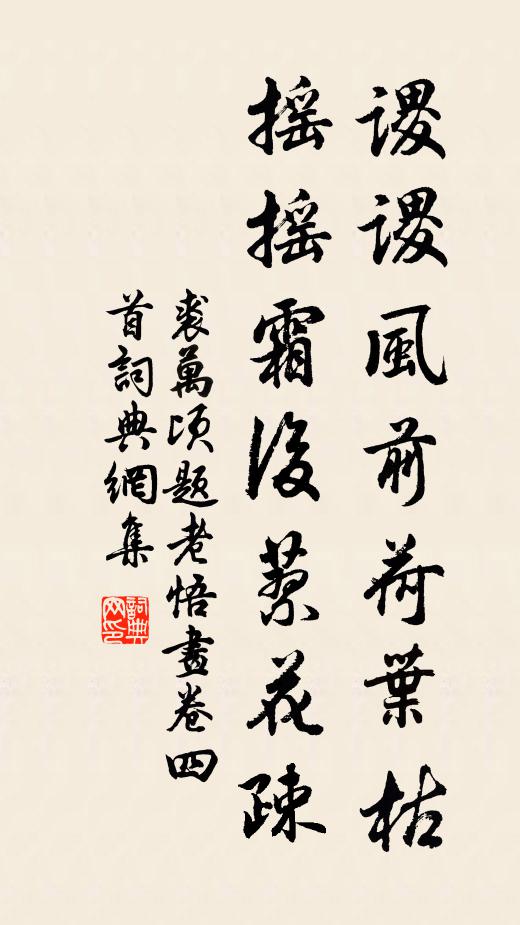 謖謖風前荷葉枯
搖搖霜後蓼花疎
裘萬頃題老悟畫卷四
首詞典網集
詞典网印